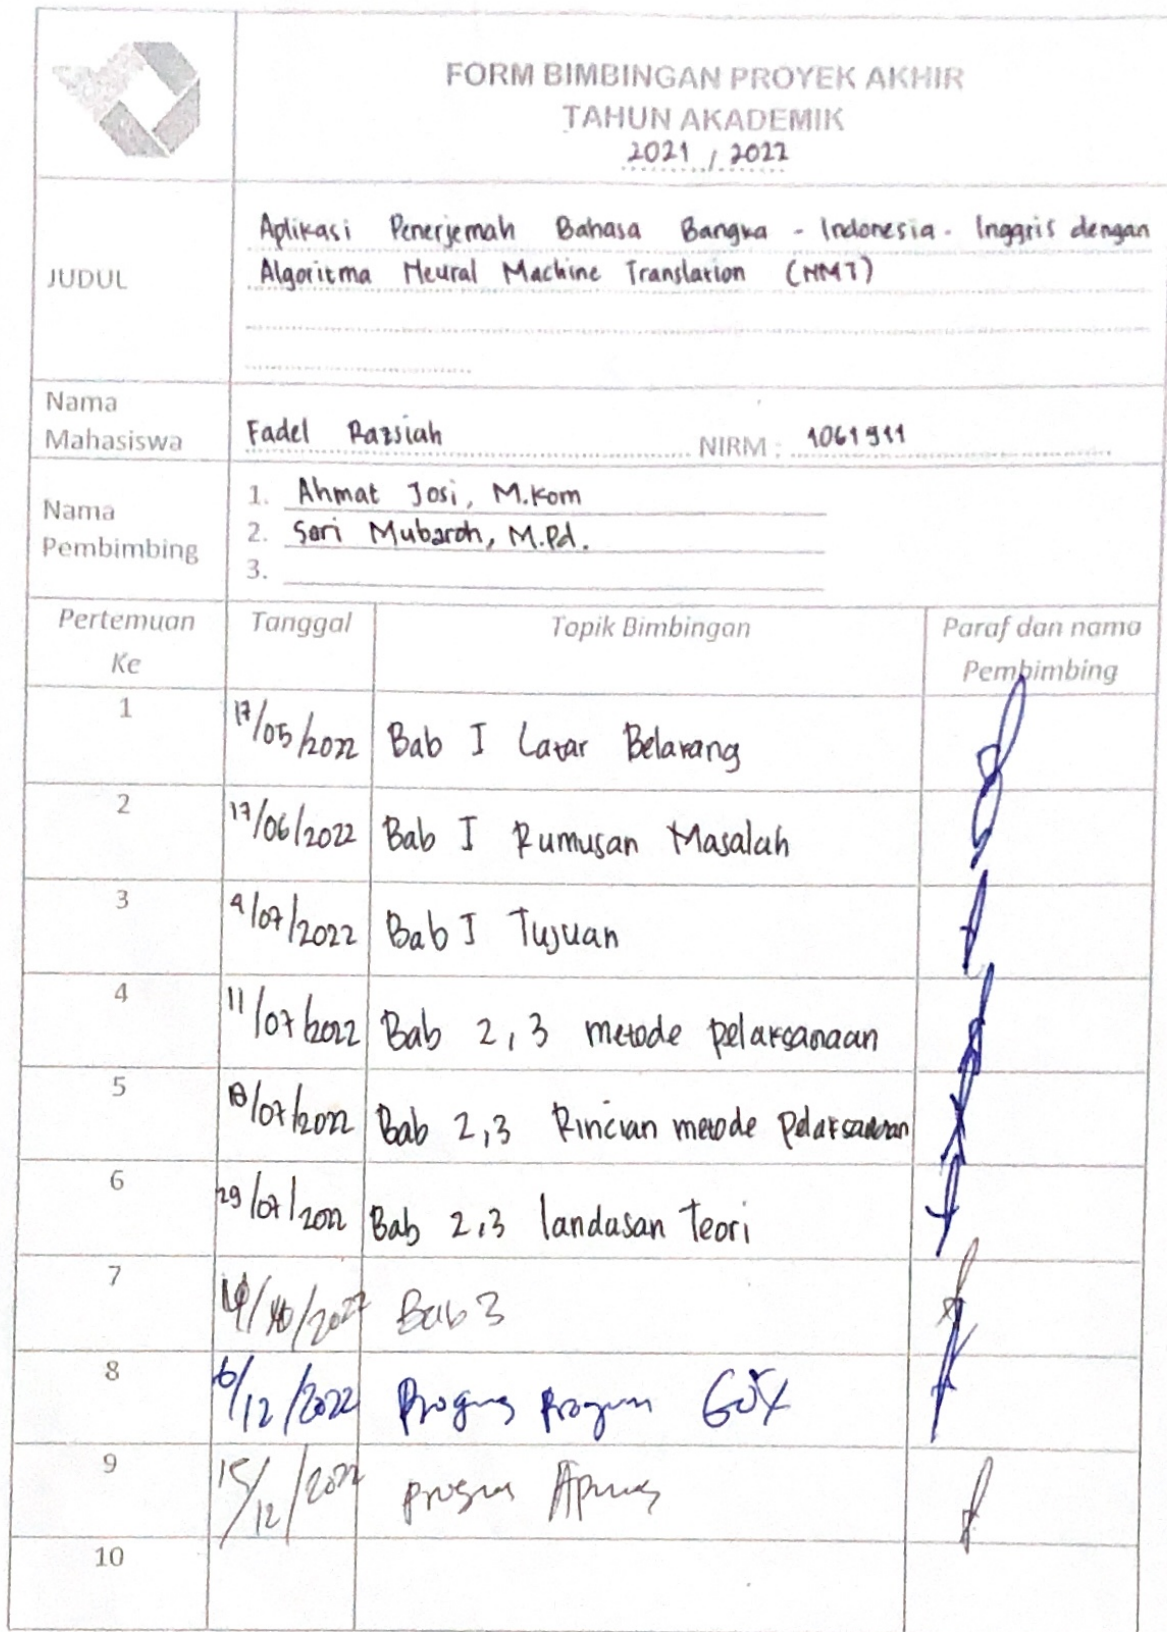 FORM BIMBINGAN PROYEK AKHIR
TAHUN AKADEMIK
2021 / 2022
JUDUL
Aplikasi Penerjemah Bahasa Bangka - Indonesia - Inggris dengan
Algoritma Neural Machine Translation (NMT)
Nama
Mahasiswa
Fadel Razsiah NIRM : 1061911
Nama
Pembimbing
1. Ahmat Josi, M.Kom
2. Sari Mubaroh, M.Pd.
3.
Pertemuan
Ke
Tanggal
Topik Bimbingan
Paraf dan nama
Pembimbing
1 17/05/2022 Bab I Latar Belakang
2 17/06/2022 Bab I Rumusan Masalah
3 4/07/2022 Bab I Tujuan
4 11/07/2022 Bab 2,3 metode pelaksanaan
5 /07/2022 Bab 2,3 Rincian metode pelaksanaan
6 29/07/2022 Bab 2,3 landasan teori
7 /10/2022 Bab 3
8 6/12/2022 Progres Program
9 15/12/2022 progres
10